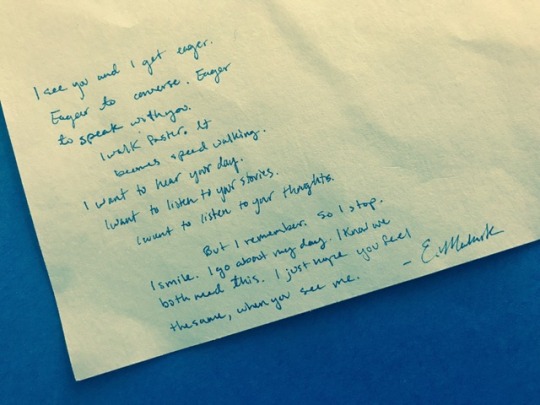 I see you and I get eager.
Eager to converse. Eager
to speak with you.
I walk faster. It
becomes speed walking.
I want to hear your day.
I want to listen to your stories.
I want to listen to your thoughts.
But I remember. So I stop.
I smile. I go about my day. I know we
both need this. I just hope you feel
the same, when you see me.
- E.